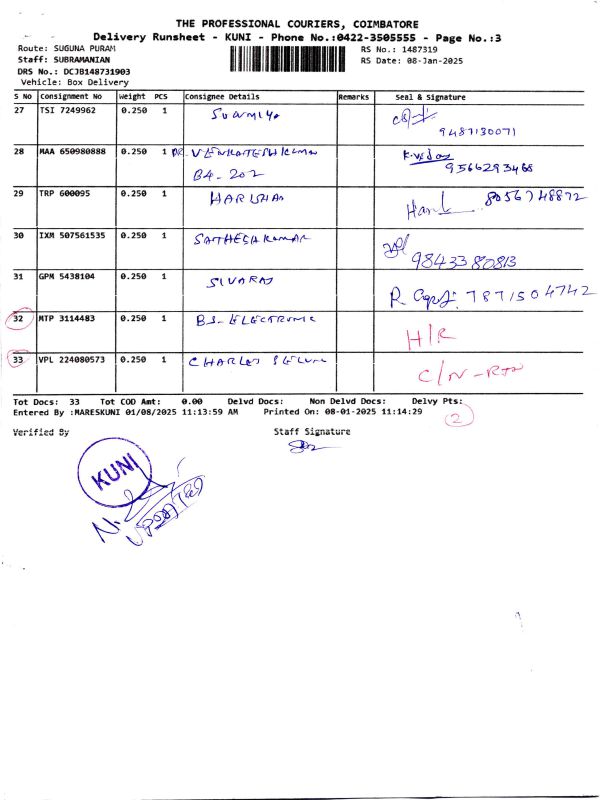 THE PROFESSIONAL COURIERS, COIMBATORE
Delivery Runsheet - KUNI - Phone No.:0422-3505555 - Page No.:3
Route: SUGUNA PURAM RS No.: 1487319
Staff: SUBRAMANIAN RS Date: 08-Jan-2025
DRS No.: DCJB148731903
Vehicle: Box Delivery
S No Consignment No Weight PCS Consignee Details Remarks Seal & Signature
27 TSI 7249962 0.250 1
9487130071
28 MAA 650980888 0.250 1 DR. VENKATESH KUMAR
B4-202 9566293468
29 TRP 600095 0.250 1 HARISHAN 8056748872
30 IXM 507561535 0.250 1 SATHESH KUMAR
9843380813
31 GPM 5438104 0.250 1 SIVARAJ 7871504742
32 MTP 3114483 0.250 1 BS-ELECTRONIC H/R
33 VPL 224080573 0.250 1 CHARLES SELVIN C/N-RTN
Tot Docs: 33 Tot COD Amt: 0.00 Delvd Docs: Non Delvd Docs: Delvy Pts:
Entered By :MARESKUNI 01/08/2025 11:13:59 AM Printed On: 08-01-2025 11:14:29
2
Verified By Staff Signature
KUNI
UPDATED